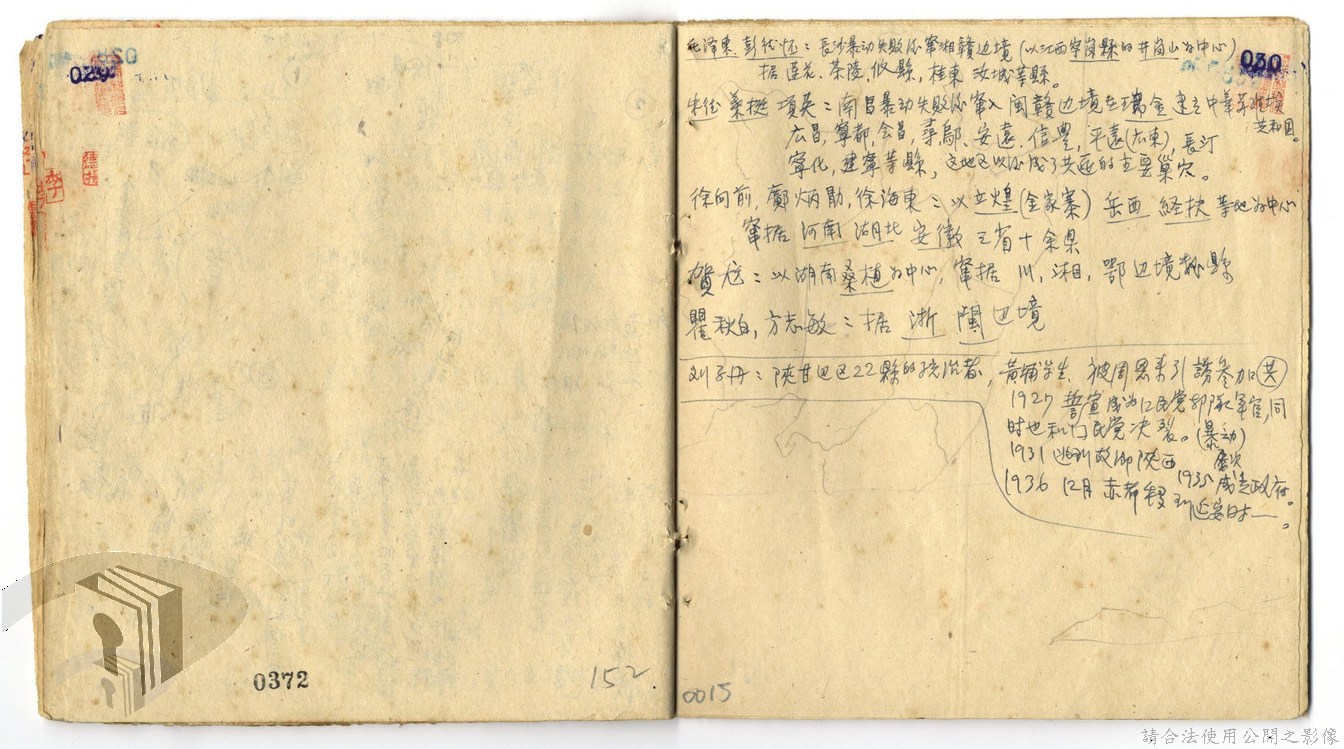 029
0372
152
030
毛泽東, 彭德怀：長沙暴动失敗后窜湘贛边境 (以江西宁岗縣的井崗山为中心)
据蓮花、茶陵, 攸縣, 桂東 汝城等縣。
朱德 葉挺 項英：南昌暴动失敗后窜入閩贛边境在瑞金建立中華苏維埃
共和国。
広昌, 寧都, 会昌, 尋鄔, 安遠, 信豊, 平遠(広東), 長汀
寧化, 建寧等縣, 这地区以后成了共匪的主要巢穴。
徐向前, 鄺炳勛, 徐海東：以立煌(金家寨) 岳西 経扶 等地为中心
窜据 河南 湖北 安徽 三省十余県
賀龙：以湖南桑植为中心, 窜据 川, 湘, 鄂边境 縣
瞿秋白, 方志敏：据 浙 閩 边境
刘子丹：陝甘边区22縣的统治者, 黃埔学生, 被周恩来引誘参加共
1927 誓宣成为囗民党部队軍官, 同
时也和囗民党决裂。(暴动)
1931 逃到故鄉陝西 屡次
1935 成立政府。
1936 12月 赤都 到延安时—。
0015
請合法使用公開之影像